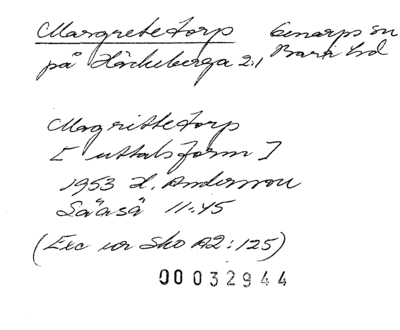 Margretetorp Genarps sn
på Häckeberga 2:1 Bara hd
Margrittetorp
[uttalsform]
1953 H. Andersson
Sååså 11:45
(Exc ur Sko A2:125)
00032944